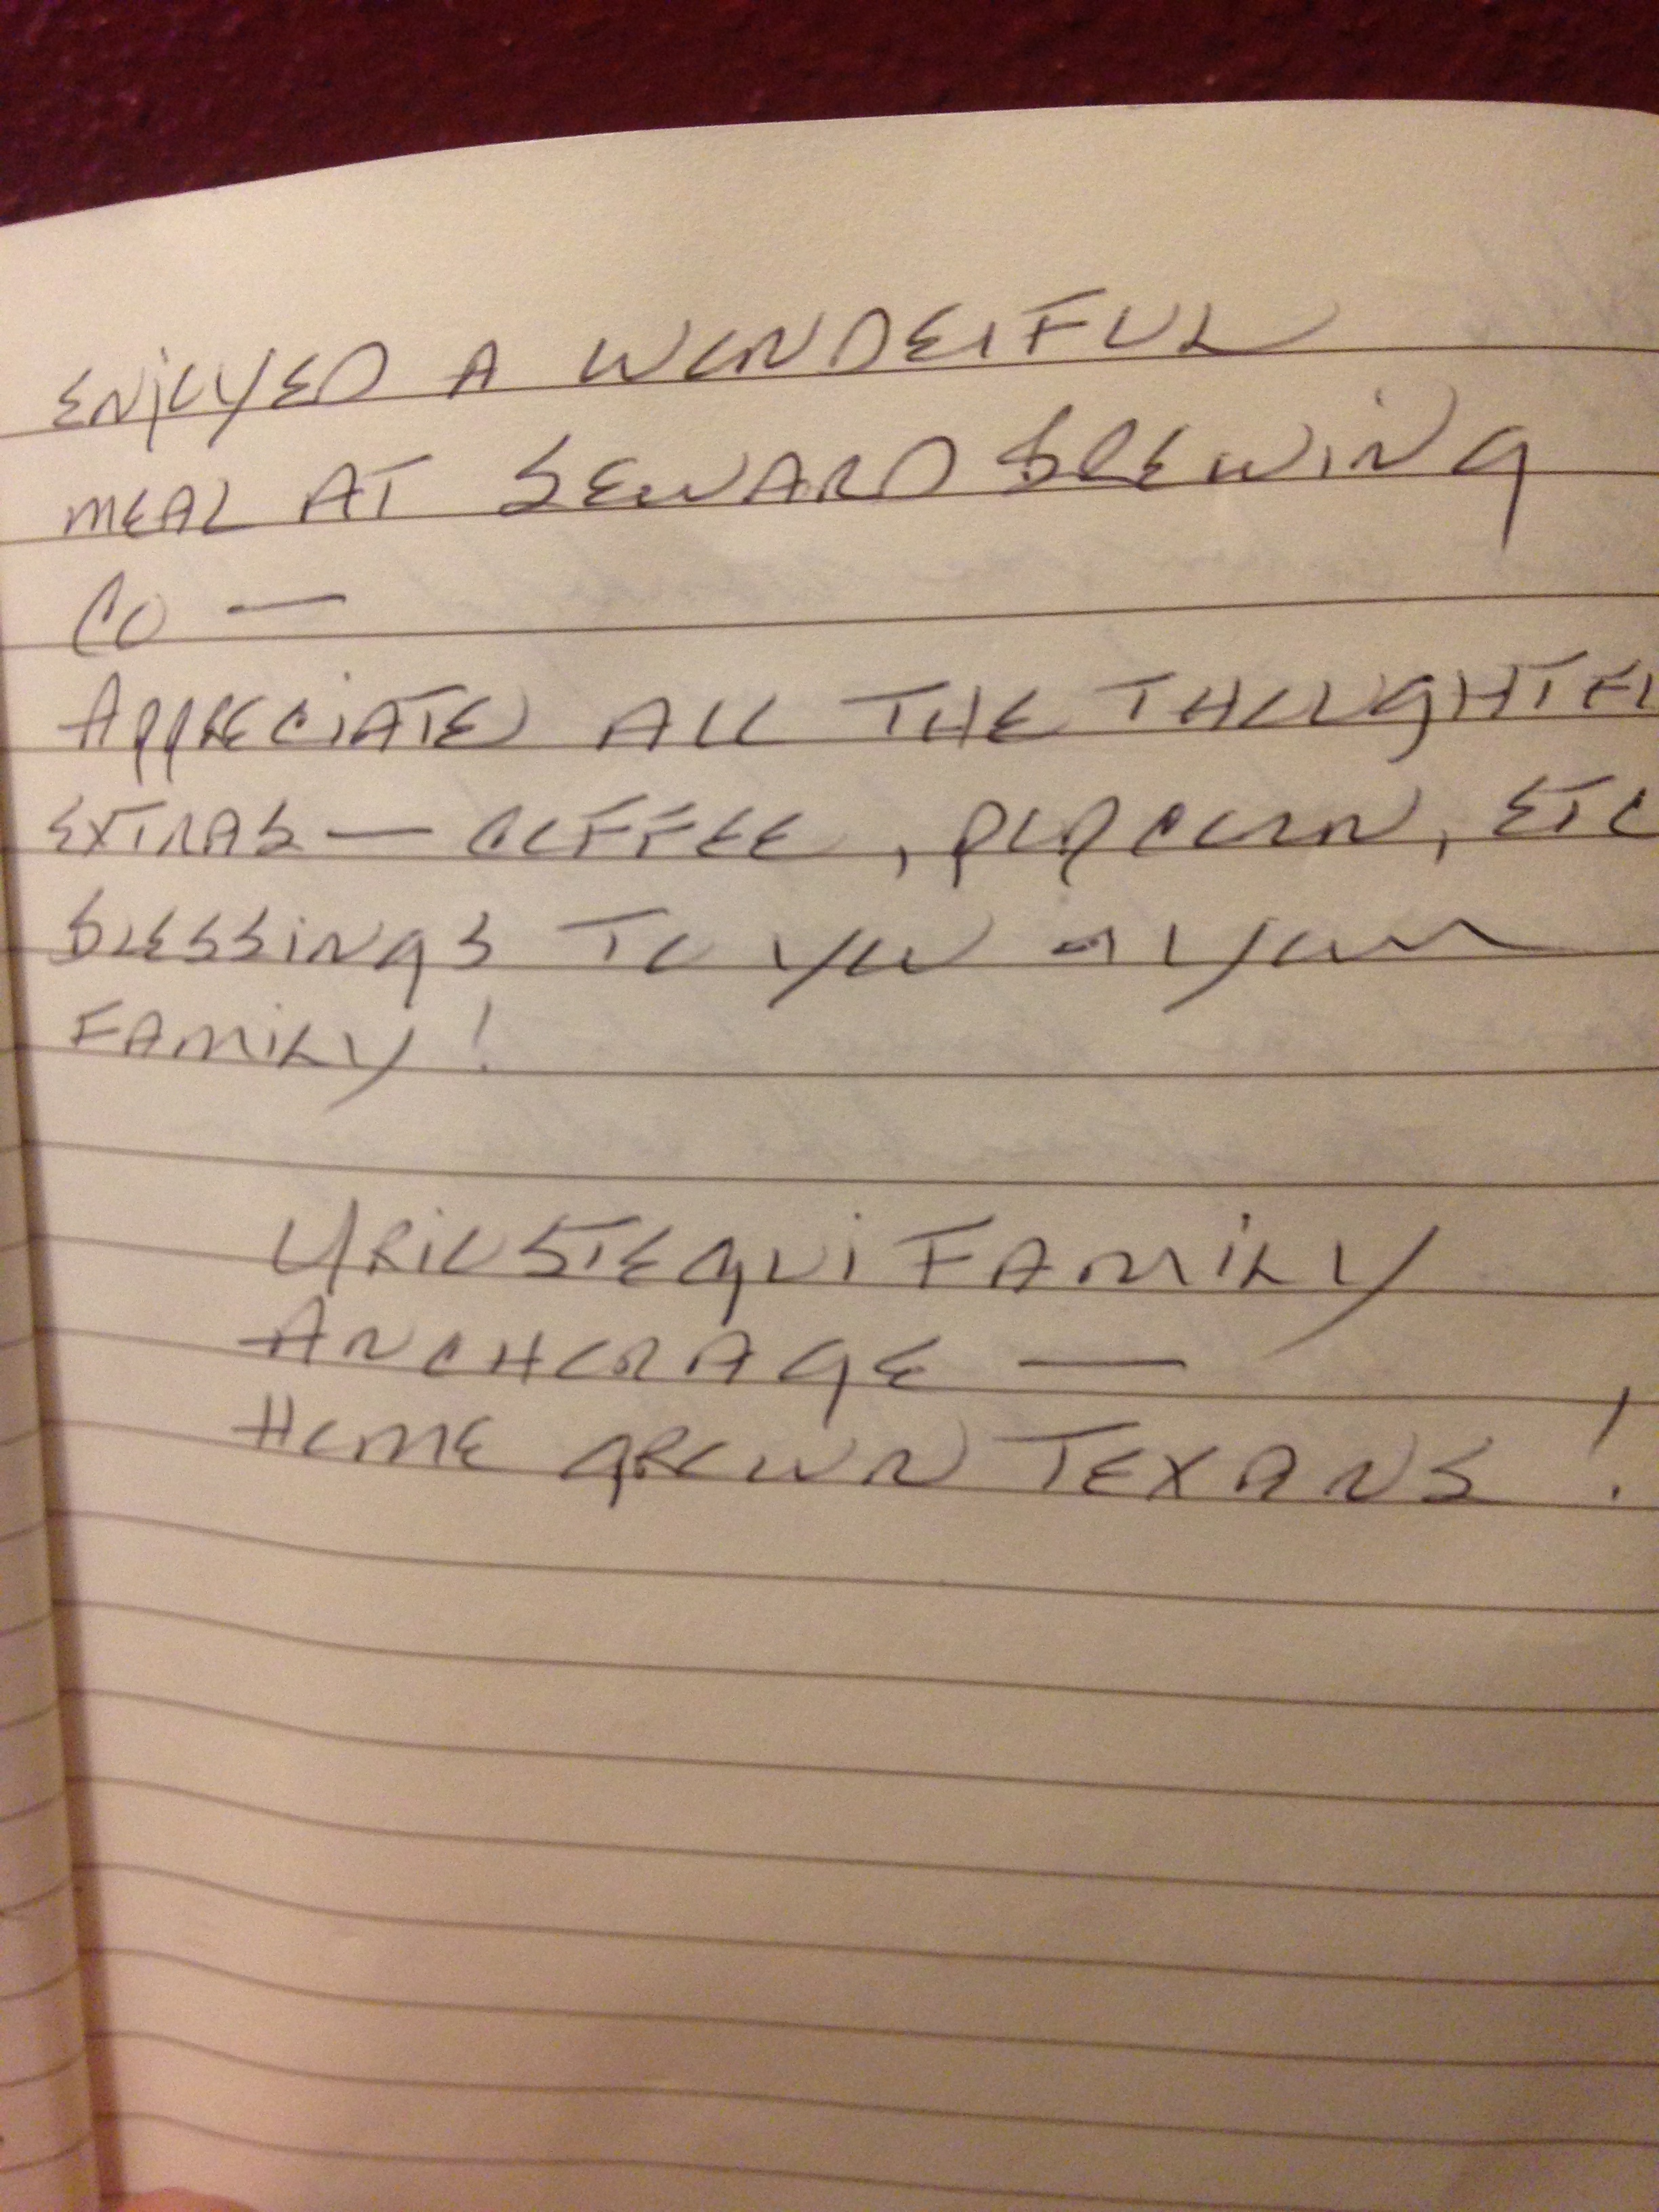 ENJOYED A WONDERFUL
MEAL AT SEWARD BREWING
CO —
APPRECIATE ALL THE THOUGHTFU
EXTRAS — COFFEE, POPCORN, ETC
BLESSINGS TO YOU & YOUR
FAMILY!
URIOSTEGUI FAMILY
ANCHORAGE —
HOME GROWN TEXANS!